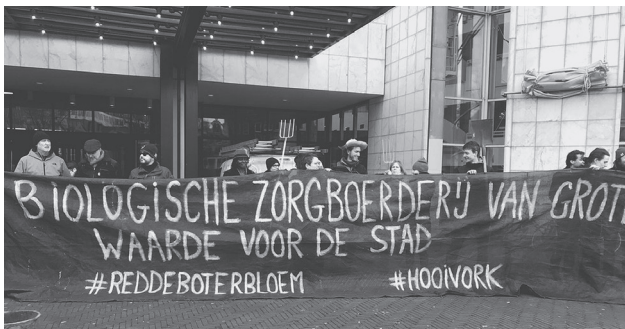 BIOLOGISCHE ZORGBOERDERIJ VAN GROT
WAARDE VOOR DE STAD
#REDDEBOTERBLOEM #HOOIVORK